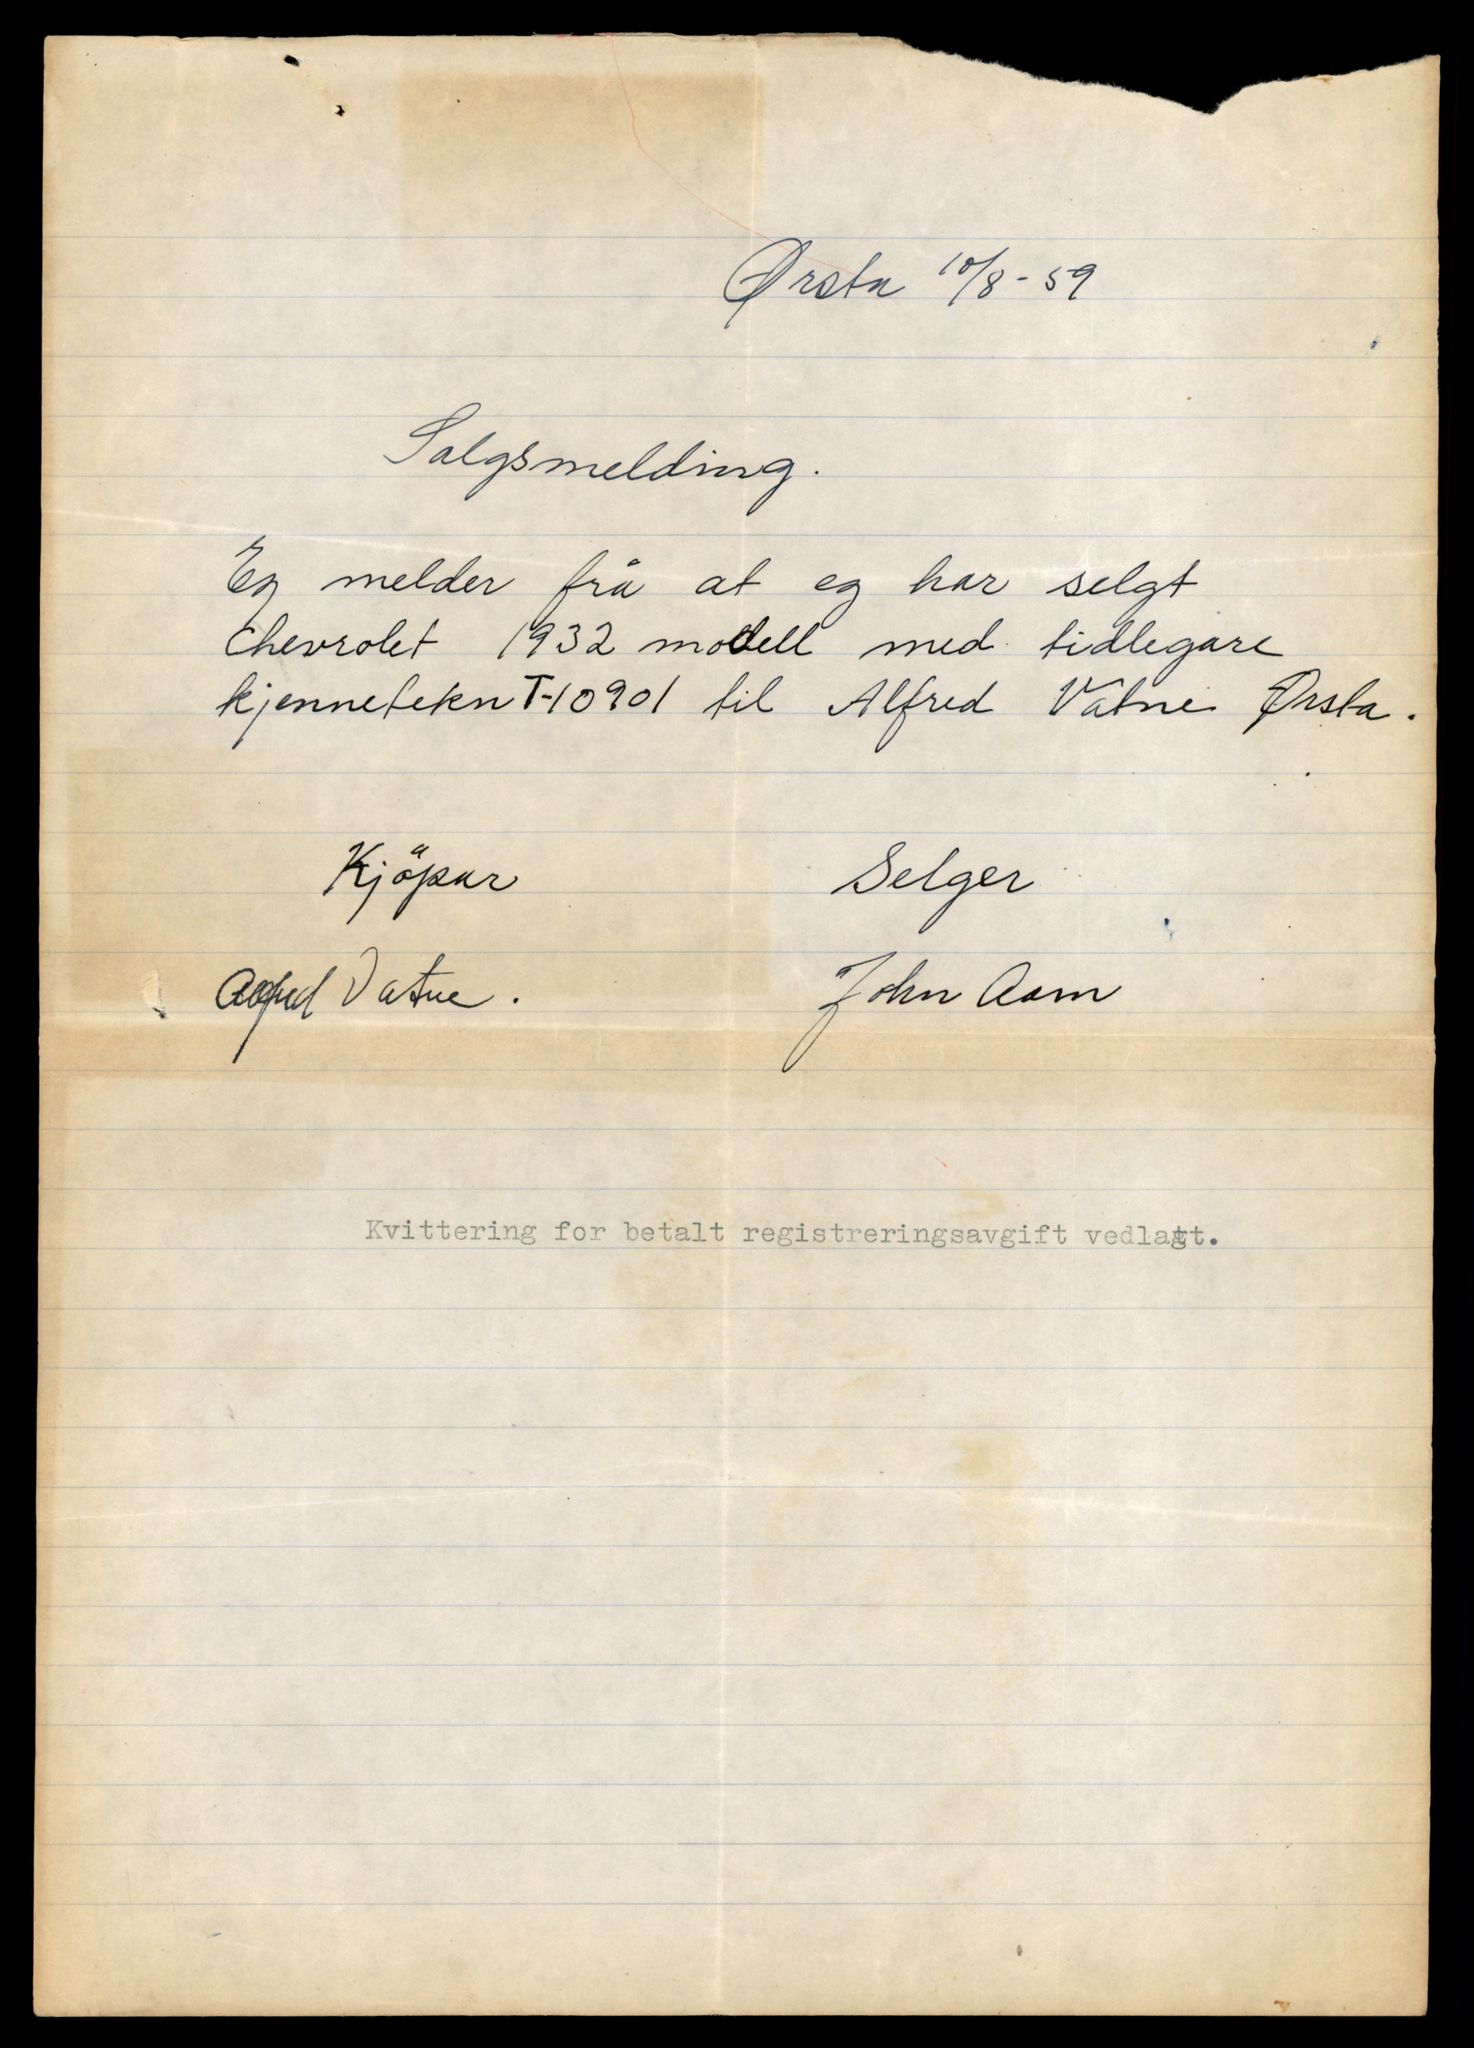 Ørsta 10/8-59
Salgsmelding.
Eg melder frå at eg har selgt
Chevrolet 1932 modell med tidlegare
kjennetekn T-10901 til Alfred Vatne Ørsta.
Kjöpar Selger
Alfred Vatne. John Aam
Kvittering for betalt registreringsavgift vedlagt.